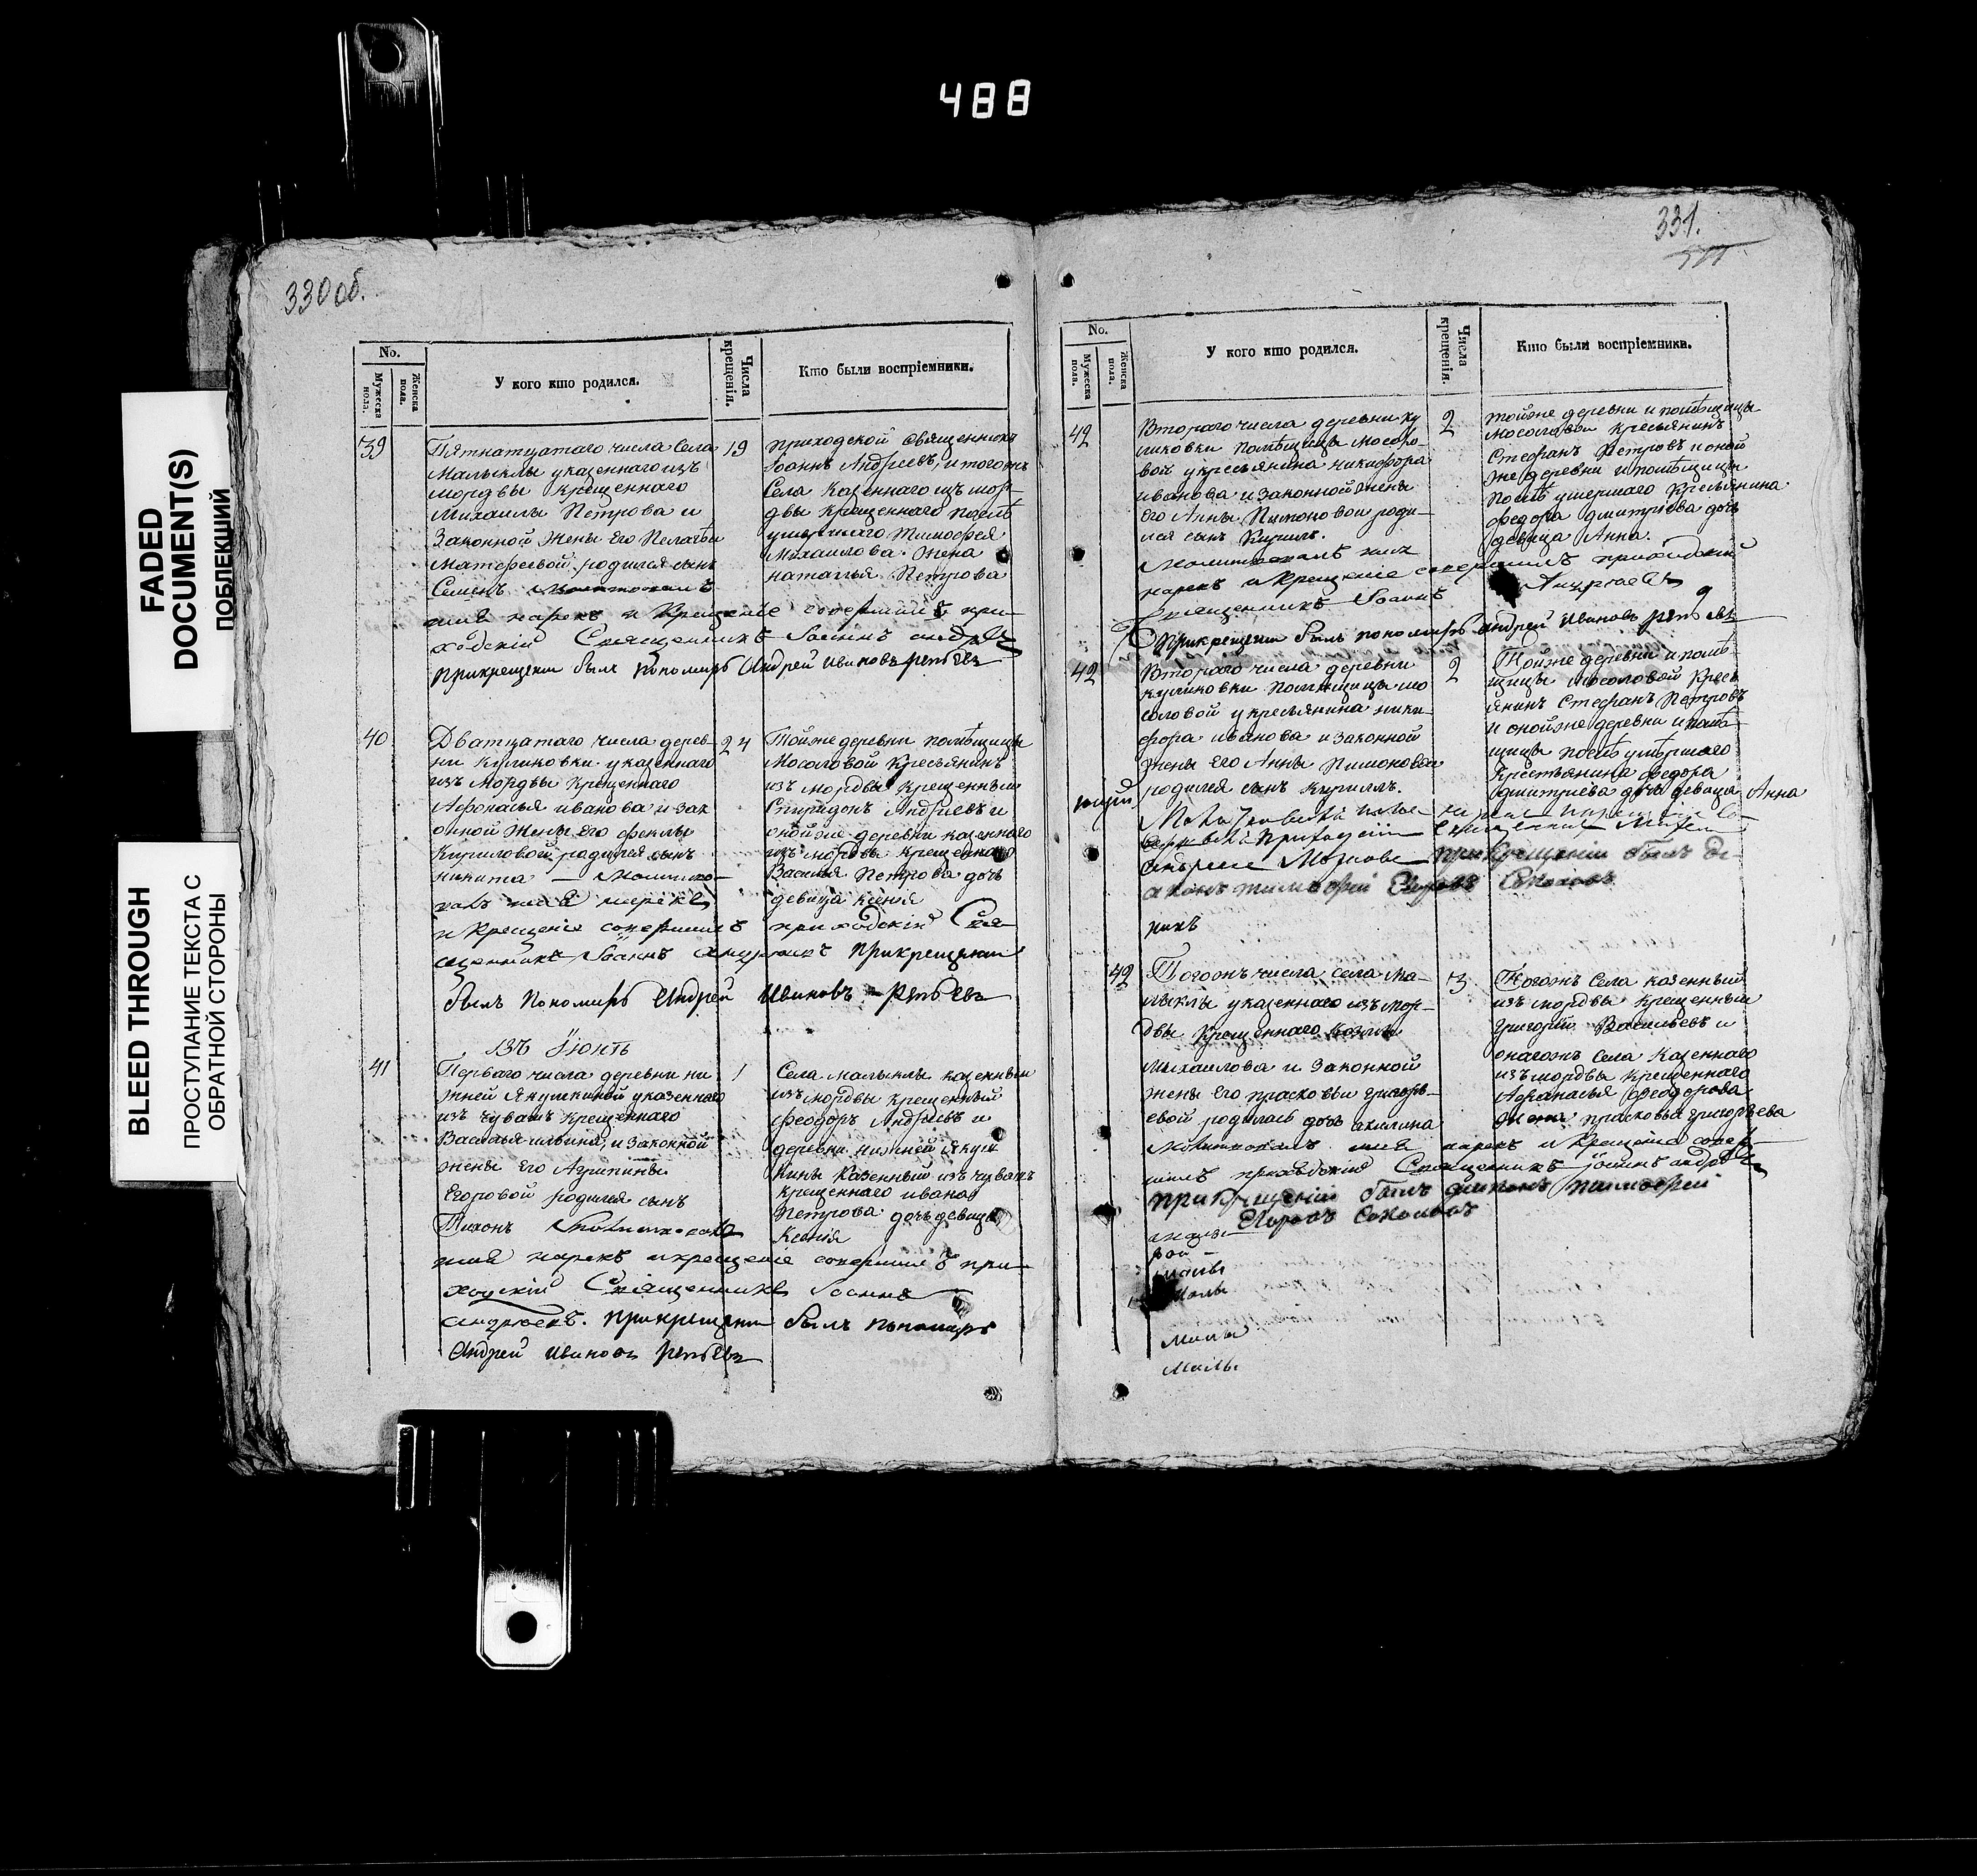 488
FADED
DOCUMENT(S)
ПОБЛЕКШИЙ
BLEED THROUGH
ПРОСТУПАНИЕ ТЕКСТА С
ОБРАТНОЙ СТОРОНЫ
330 об.
No.
Мужеска пола.
Женска пола.
У кого кто родился.
Числа крещенія.
Кто были воспріемники.
39
Пятнатцатаго числа Села
Малыклы указеннаго изъ
мордвы крещеннаго
Михаилы Петрова и
Законной жены Его Пелагѣи
Матфеевой родился сынъ
Семенъ Молитвовалъ
имя нарекъ и Крещеніе совершилъ при-
ходскій Священникъ Іоаннъ
прикрещеніи былъ пономарь Андрей Ивановъ
19
приходской священникъ
Іоаннъ Андреевъ, и тогожъ
Села Казеннаго изъ мор-
двы крещеннаго послѣ
умершаго Тимофея
Михаилова жена
наталья Петрова
40
Дватцатаго числа дерев-
ни Куликовки указеннаго
изъ Мордвы крещеннаго
Афонасья иванова и зак
онной жены Его феклы
Кириловой родился сынъ
никита — молитво-
валъ имя нарекъ
и Крещеніе совершилъ приходскій Свя-
щенникъ Іоаннъ прикрещеніи
былъ Пономарь Андрей Ивановъ
24
Тойже деревни помѣщицы
Мосоловой Кресьянинъ
изъ мордвы крещенный
Спиридонъ Андреевъ и
онойже деревни казеннаго
изъ мордвы крещеннаго
Василья Петрова дочь
девица Ксенія
въ Іюнѣ
41
Перваго числа деревни ни
жней Якушкиной указеннаго
изъ чувашъ крещеннаго
Василья ильина, и законной
жены Его Агрипины
Егоровой родился сынъ
Тихонъ Молитвовалъ
имя нарекъ и крещеніе совершилъ при-
ходскій Священникъ Іоаннъ
Андреевъ. прикрещеніи былъ пономарь
Андрей Ивановъ
1
Села малыклы казенный
изъ мордвы крещенный
феодоръ Андреевъ и
деревни нижней Якуш
кины Казенный изъ чувашъ
крещеннаго ивана
Петрова дочь девица
Ксенія
331.
No.
Мужеска пола.
Женска пола.
У кого кто родился.
Числа крещенія.
Кто были воспріемники.
42
Втораго числа деревни ку
ликовки Помѣщицы Мосоло-
вой у кресьянина никифора
иванова и законной жены
его Анны Пимоновой роди-
лся сынъ Кирилъ.
Молитвовалъ имя
нарекъ и Крещеніе совершилъ приходскій
Священникъ Іоаннъ Андреевъ
Прикрещеніи былъ пономарь Андрей Ивановъ
2
тойже деревни и помѣщицы
Мосоловой кресьянинъ
Стефанъ Петровъ и оной
же деревни и помѣщицы
послѣ умершаго кресьянина
федора дмитріева дочь
девица Анна.
42
Втораго числа деревни
куликовки Помѣщицы мо
соловой у кресьянина ники-
фора иванова и законной
жены Его Анны Пимоновой
родился сынъ Кириллъ.
прикрещеніи былъ ді-
аконъ тимофей Егоровъ Соколовъ
2
Тойже деревни и помѣ-
щицы Мосоловой Кресь
янинъ Стефанъ Петровъ
и онойже деревни и помѣ-
щицы послѣ умѣршаго
Крестьянина федора
дмитріева дочь девица Анна
никъ
42
Тогожъ числа села ма-
лыклы указеннаго изъ мор-
двы крещеннаго козмы
Михаилова и Законной
жены Его прасковьи григорь-
евой родилась дочь акилина
Молитвовалъ имя нарекъ и Крещеніе совер-
шилъ приходскій Священникъ Іоаннъ
прикрещеніи былъ діаконъ тимофей
Егоровъ Соколовъ
3
Тогожъ Села казенный
изъ мордвы крещенный
григорій Васильевъ и
онагожъ села Казеннаго
изъ мордвы крещеннаго
Афанасья феодорова
жена прасковья григорьева